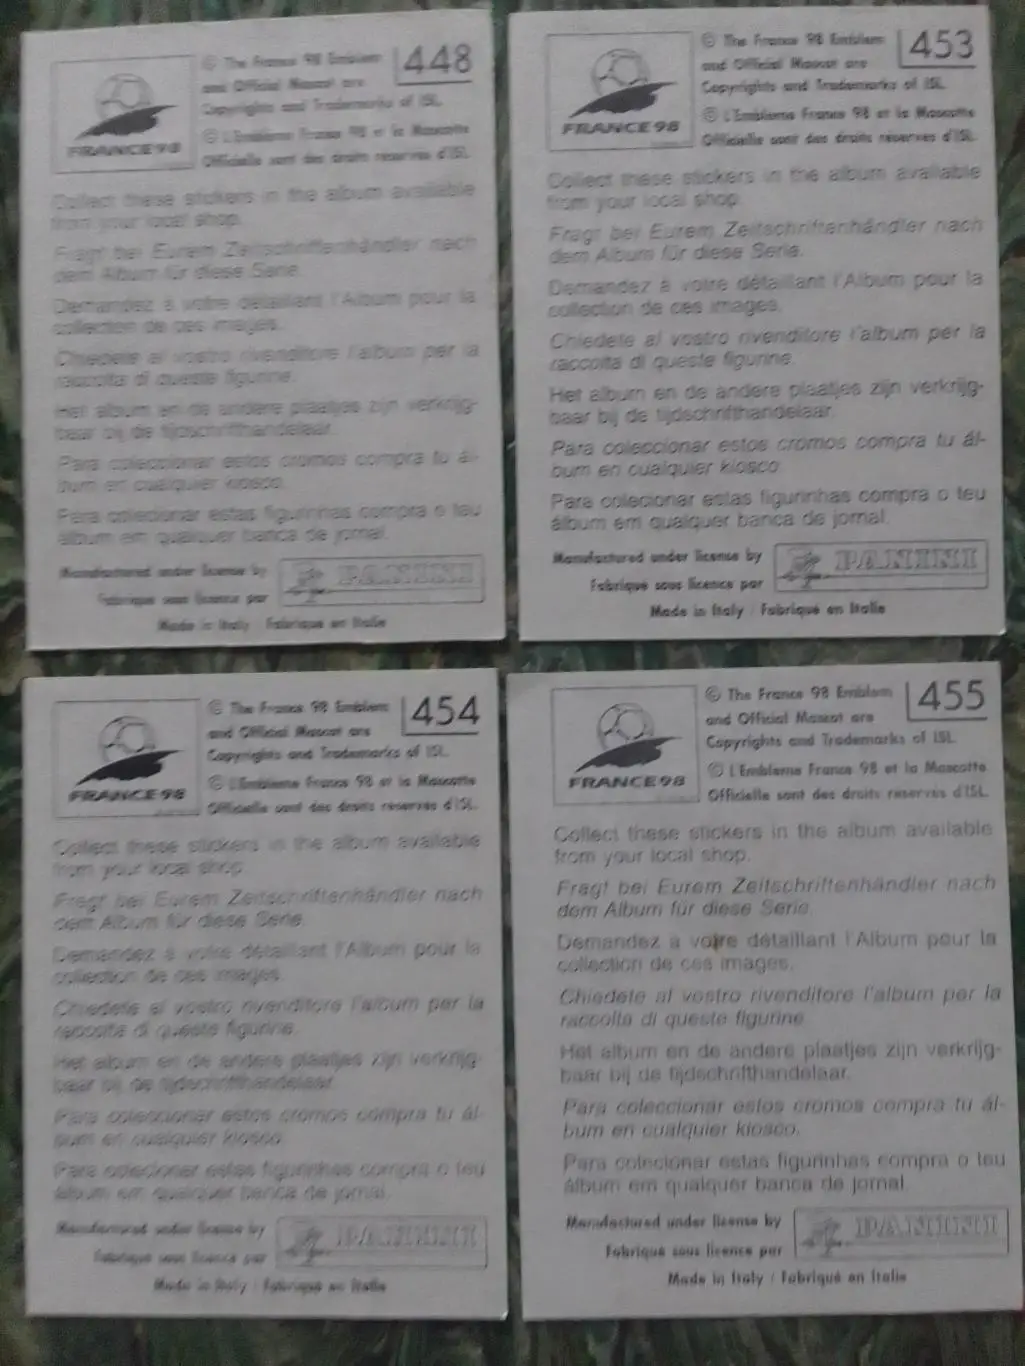 © The France 98 Emblem
and Official Mascot are
Copyrights and Trademarks of ISL.
© L'Emblème France 98 et la Mascotte
Officielle sont des droits réservés d'ISL.
448
FRANCE98
Collect these stickers in the album available
from your local shop.
Fragt bei Eurem Zeitschriftenhändler nach
dem Album für diese Serie.
Demandez à votre détaillant l'Album pour la
collection de ces images.
Chiedete al vostro rivenditore l'album per la
raccolta di queste figurine.
Het album en de andere plaatjes zijn verkrijg-
baar bij de tijdschrifthandelaar.
Para coleccionar estos cromos compra tu ál-
bum en cualquier kiosco.
Para colecionar estas figurinhas compra o teu
álbum em qualquer banca de jornal.
Manufactured under license by
Fabriqué sous licence par
PANINI
Made in Italy / Fabriqué en Italie
© The France 98 Emblem
and Official Mascot are
Copyrights and Trademarks of ISL.
© L'Emblème France 98 et la Mascotte
Officielle sont des droits réservés d'ISL.
453
FRANCE98
Collect these stickers in the album available
from your local shop.
Fragt bei Eurem Zeitschriftenhändler nach
dem Album für diese Serie.
Demandez à votre détaillant l'Album pour la
collection de ces images.
Chiedete al vostro rivenditore l'album per la
raccolta di queste figurine.
Het album en de andere plaatjes zijn verkrijg-
baar bij de tijdschrifthandelaar.
Para coleccionar estos cromos compra tu ál-
bum en cualquier kiosco.
Para colecionar estas figurinhas compra o teu
álbum em qualquer banca de jornal.
Manufactured under license by
Fabriqué sous licence par
PANINI
Made in Italy / Fabriqué en Italie
© The France 98 Emblem
and Official Mascot are
Copyrights and Trademarks of ISL.
© L'Emblème France 98 et la Mascotte
Officielle sont des droits réservés d'ISL.
454
FRANCE98
Collect these stickers in the album available
from your local shop.
Fragt bei Eurem Zeitschriftenhändler nach
dem Album für diese Serie.
Demandez à votre détaillant l'Album pour la
collection de ces images.
Chiedete al vostro rivenditore l'album per la
raccolta di queste figurine.
Het album en de andere plaatjes zijn verkrijg-
baar bij de tijdschrifthandelaar.
Para coleccionar estos cromos compra tu ál-
bum en cualquier kiosco.
Para colecionar estas figurinhas compra o teu
álbum em qualquer banca de jornal.
Manufactured under license by
Fabriqué sous licence par
PANINI
Made in Italy / Fabriqué en Italie
© The France 98 Emblem
and Official Mascot are
Copyrights and Trademarks of ISL.
© L'Emblème France 98 et la Mascotte
Officielle sont des droits réservés d'ISL.
455
FRANCE98
Collect these stickers in the album available
from your local shop.
Fragt bei Eurem Zeitschriftenhändler nach
dem Album für diese Serie.
Demandez à votre détaillant l'Album pour la
collection de ces images.
Chiedete al vostro rivenditore l'album per la
raccolta di queste figurine.
Het album en de andere plaatjes zijn verkrijg-
baar bij de tijdschrifthandelaar.
Para coleccionar estos cromos compra tu ál-
bum en cualquier kiosco.
Para colecionar estas figurinhas compra o teu
álbum em qualquer banca de jornal.
Manufactured under license by
Fabriqué sous licence par
PANINI
Made in Italy / Fabriqué en Italie